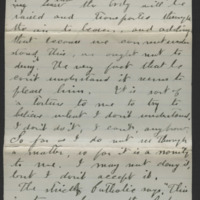 ing that the body will be
raised and transported through
the air to heaven, and adding
that because we can not under-
stand this, we ought not to
deny. The very fact that he
can't understand it seems to
please him. It is sort of
a torture to me to try to
believe what I don't understand.
I don't do it, I can't, anyhow.
So far as I do not see through
a matter, so far it is a nonentity
to me. I may not deny it
but I don't accept it.
The strictly says "This